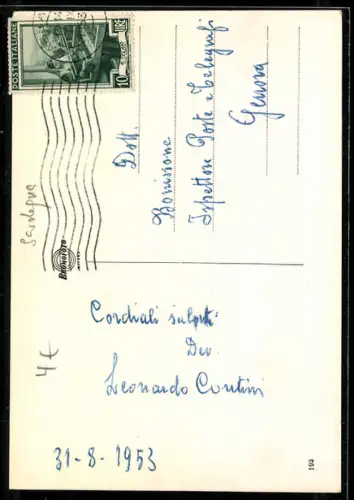 POSTE ITALIANE
LIRE
10
Dott.
Bonissone
Ispettore Poste e Telegrafi
Genova
Sardegna
Cordiali saluti
Dev
Leonardo Contini
4 €
31-8-1953
193